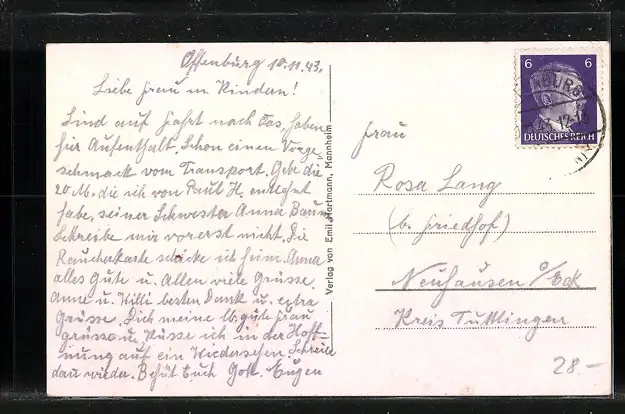 Offenburg 10.11.43.
Liebe Frau u. Kinder!
Sind auf Fahrt nach Das. haben
hier Aufenthalt. Schon einen Vorge
schmack vom Transport. Gebe die
20 M. die ich von Paul H. entlehnt
habe, seiner Schwester Anna Baum
Schreibe mir vorerst nicht. Die
Raucherkarte schicke ich heim. Anna
alles Gute u. Allen viele Grüsse.
Anne u. Willi besten Dank u. extra
Grüsse. Dich meine lb. gute Frau
grüsse u. Küsse ich in der Hoff-
nung auf ein Wiedersehen. Schreibe
dann wieder. Behüt Euch Gott. Eugen
Verlag von Emil Hartmann, Mannheim
6 6
DEUTSCHES REICH
Frau
Rosa Lang
(b. Friedhof)
Neuhausen o/Eck
Kreis Tuttlingen
28.-